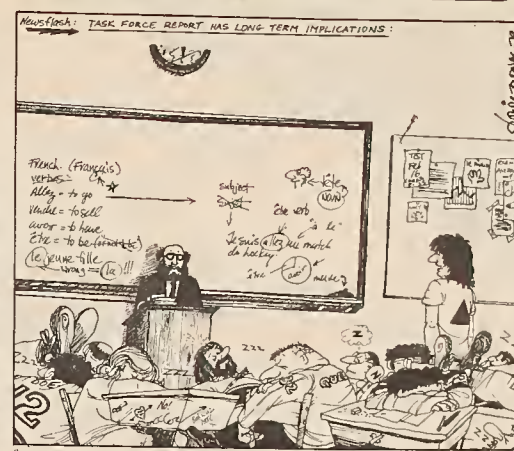 Newsflash: TASK FORCE REPORT HAS LONG TERM IMPLICATIONS:
French. (Français)
verbes =
Allez = to go
vendre = to sell
avoir = to have
être = to be
le jeune fille
wrong = la !!!
subject
Sujet
être verb
"à le"
Je suis allez au match
de hockey
être
NON
TEST
Feb
16
zzz
zzz
Z
No!